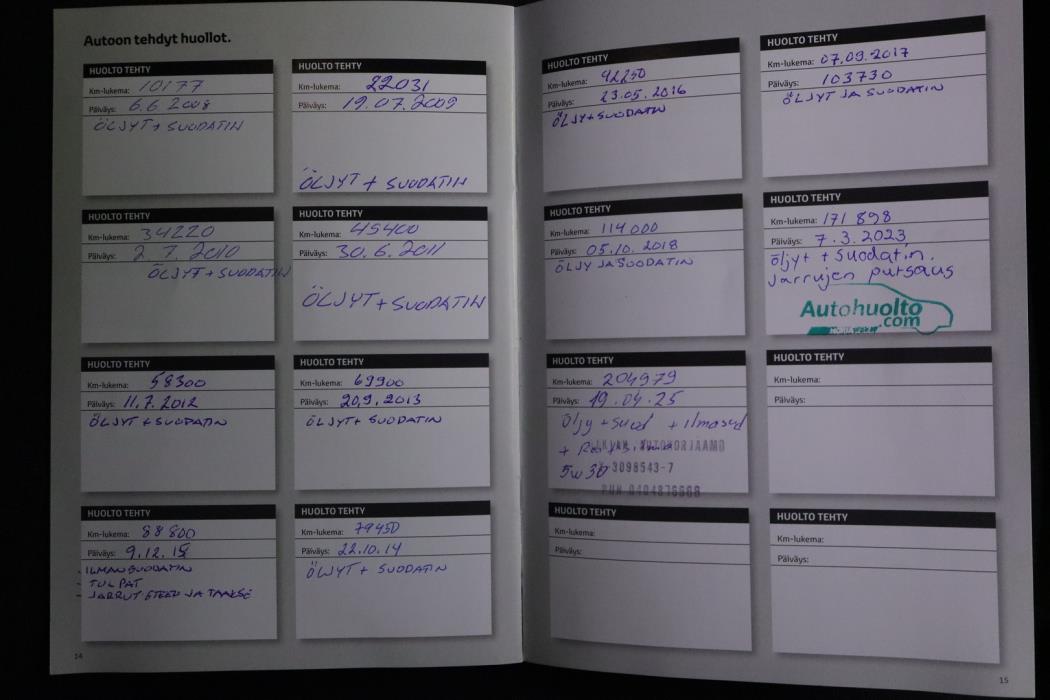 Autoon tehdyt huollot.
HUOLTO TEHTY
Km-lukema: 10177
Päiväys: 6.6 2008
ÖLJYT + SUODATIN
HUOLTO TEHTY
Km-lukema: 22031
Päiväys: 19.07.2009
ÖLJYT + SUODATIN
HUOLTO TEHTY
Km-lukema: 34220
Päiväys: 2 7. 2010
ÖLJYT + SUODATIN
HUOLTO TEHTY
Km-lukema: 45400
Päiväys: 30.6.2011
ÖLJYT + SUODATIN
HUOLTO TEHTY
Km-lukema: 58300
Päiväys: 11.7.2012
ÖLJYT + SUODATIN
HUOLTO TEHTY
Km-lukema: 69900
Päiväys: 20.9.2013
ÖLJYT + SUODATIN
HUOLTO TEHTY
Km-lukema: 88800
Päiväys: 9.12.15
- ILMANSUODATIN
- TULPAT
- JARRUT ETEEN JA TAAKSE
HUOLTO TEHTY
Km-lukema: 79450
Päiväys: 22.10.14
ÖLJYT + SUODATIN
14
HUOLTO TEHTY
Km-lukema: 92250
Päiväys: 23.05.2016
ÖLJY+SUODATIN
HUOLTO TEHTY
Km-lukema: 07.09.2017
Päiväys: 103730
ÖLJYT JA SUODATIN
HUOLTO TEHTY
Km-lukema: 114000
Päiväys: 05.10.2018
ÖLJY JA SUODATIN
HUOLTO TEHTY
Km-lukema: 171 898
Päiväys: 7.3.2023
öljyt + suodatin.
Jarrujen putsaus
Autohuolto
.com
HUOLTO TEHTY
Km-lukema: 204979
Päiväys: 19.04.25
Öljy + suod + ilmasud
+
AUTOKORJAAMO
5w30
3098543-7
PUH
HUOLTO TEHTY
Km-lukema:
Päiväys:
HUOLTO TEHTY
Km-lukema:
Päiväys:
HUOLTO TEHTY
Km-lukema:
Päiväys:
15